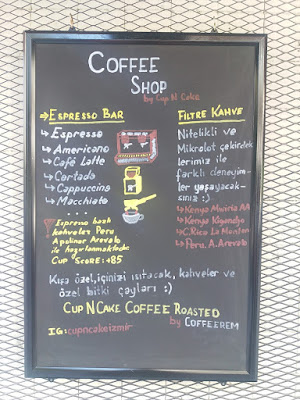 COFFEE
SHOP
by Cup N Cake
ESPRESSO BAR
Espresso
Americano
Café Latte
Cortado
Cappuccino
Macchiato
Espresso bazlı
kahveler Peru
Apolinar Arevalo
ile hazırlanmaktadır.
CUP SCORE: +85
FILTRE KAHVE
Nitelikli ve
Mikrolot çekirdek
lerimiz ile
farklı deneyim-
ler yaşayacak-
sınız :)
Kenya Mwiria AA
Kenya Kigandjo
C. Rica La
Peru. A. Arevalo
Kışa özel, içinizi ısıtacak, kahveler ve
özel bitki çayları :)
CUP NCAKE COFFEE ROASTED
by COFFEEREM
IG: cupncakeizmir